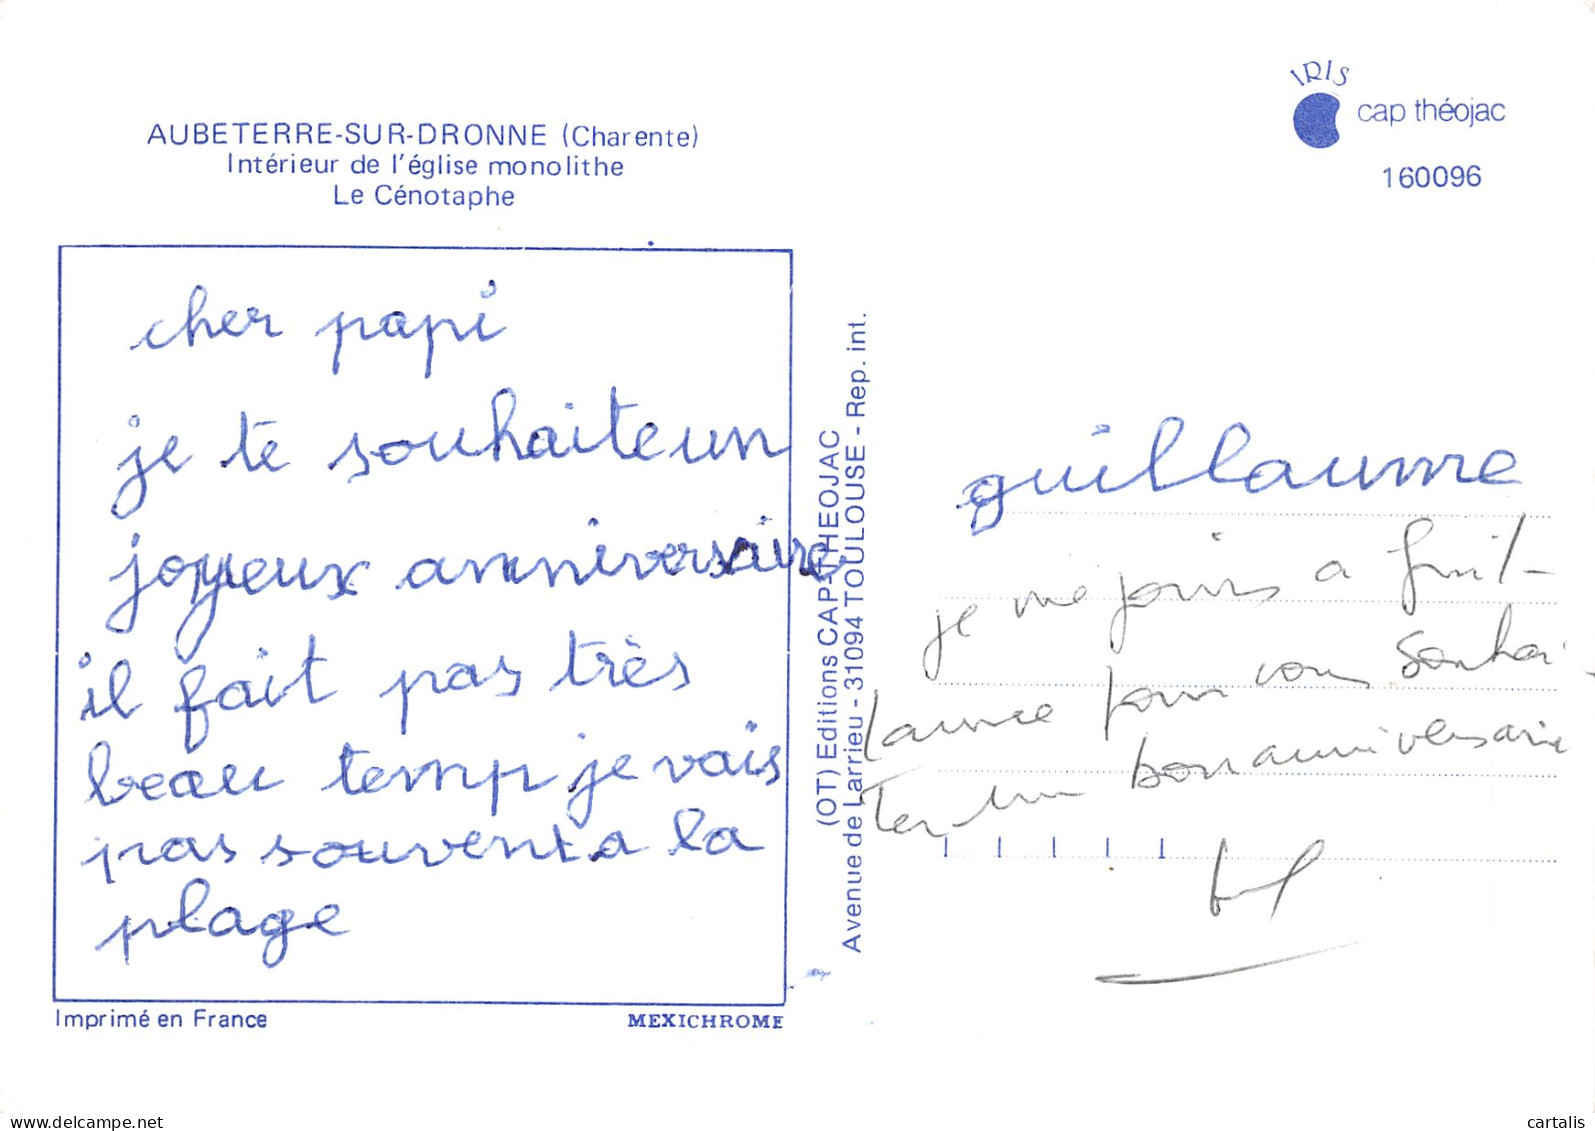 AUBETERRE-SUR-DRONNE (Charente)
Intérieur de l'église monolithe
Le Cénotaphe
IRIS
cap théojac
160096
cher papi
je te souhaite un
joyeux anniversaire
il fait pas très
beau temp je vais
pas souvent a la
plage
Imprimé en France
MEXICHROME
(OT) Editions CAP-THEOJAC
Avenue de Larrieu - 31094 TOULOUSE - Rep. int.
guillaume
je me joins a Guil-
laume pour vous souhai
ter un bon anniversaire
www.delcampe.net
cartalis